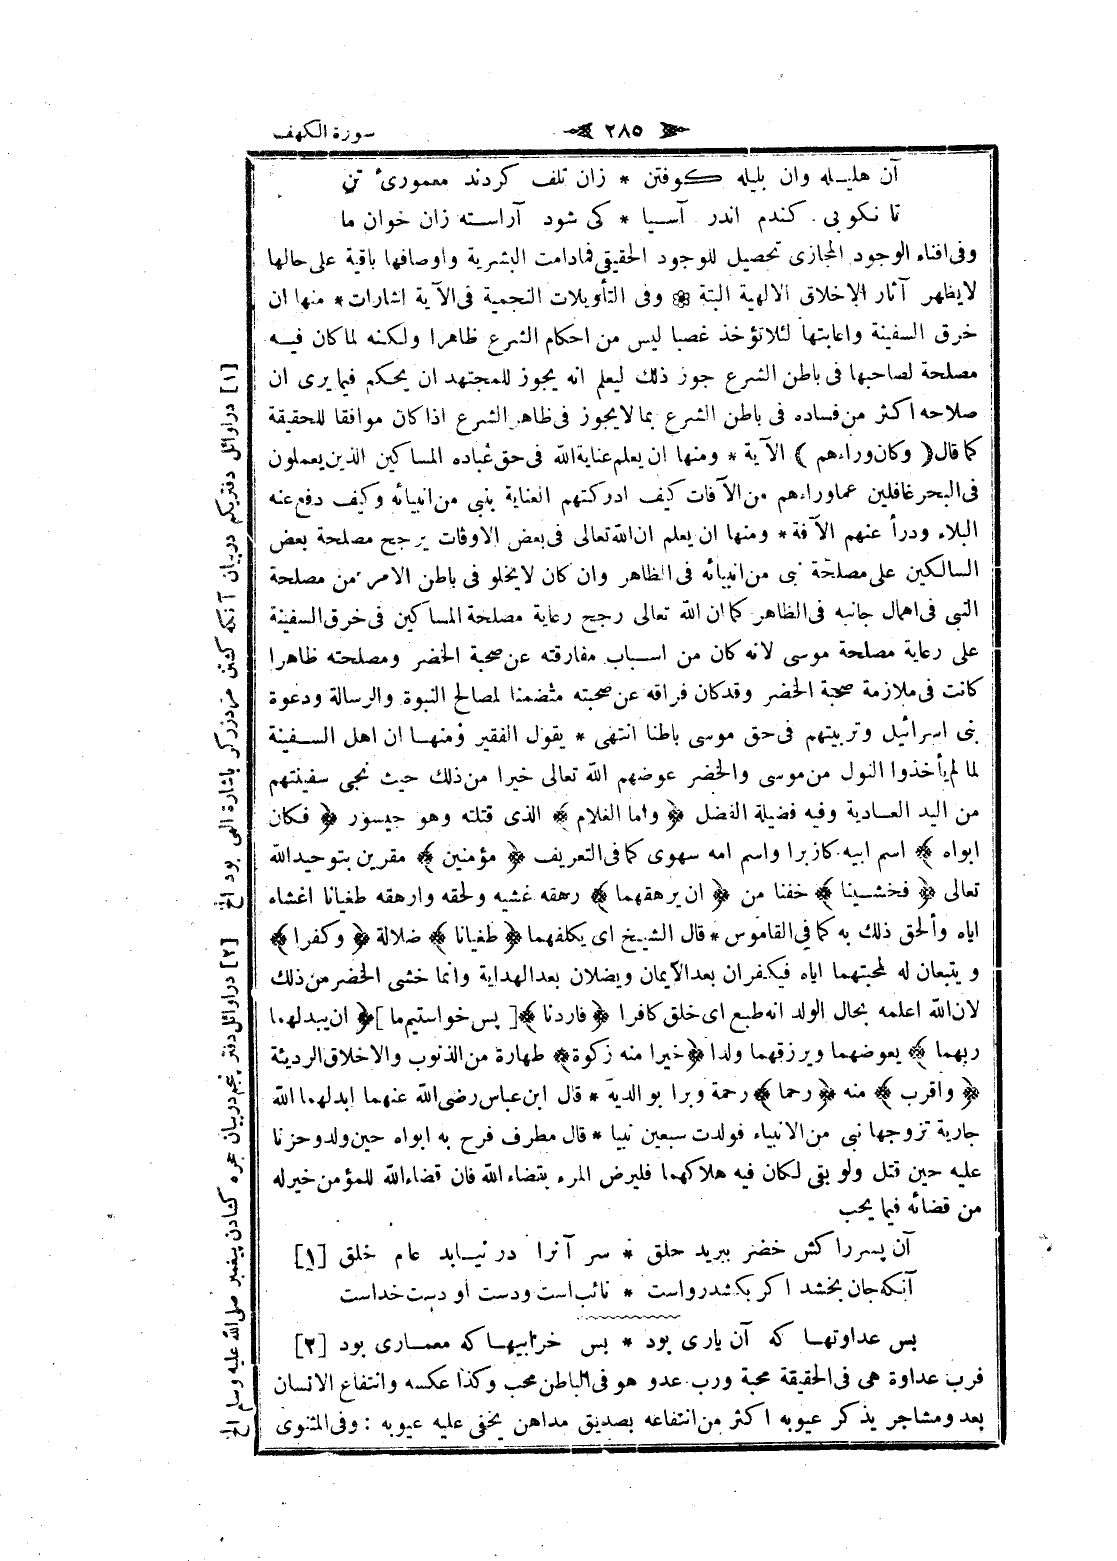 سورة الكهف
٢٨٥
آن هليله وان بليله كوفتن * زان تلف كردند معمورىٔ تن
تا نكوبى كندم اندر آسيا * كى شود آراسته زان خوان ما
وفى افناء الوجود المجازى تحصيل للوجود الحقيقى فمادامت البشرية واوصافها باقية على حالها
لايظهر آثار الاخلاق الالهية البتة ۞ وفى التأويلات النجمية فى الآية اشارات * منها ان
خرق السفينة واعابتها لئلاتؤخذ غصبا ليس من احكام الشرع ظاهرا ولكنه لما كان فيه
مصلحة لصاحبها فى باطن الشرع جوز ذلك ليعلم انه يجوز للمجتهد ان يحكم فيما يرى ان
صلاحه اكثر من فساده فى باطن الشرع بما لايجوز فى ظاهر الشرع اذا كان موافقا للحقيقة
كما قال ( وكان وراءهم ) الآية * ومنها ان يعلم عناية الله فى حق عباده المساكين الذين يعملون
فى البحر غافلين عما وراءهم من الآفات كيف ادركتهم العناية بنبى من انبيائه وكيف دفع عنه
البلاء ودرأ عنهم الآفة * ومنها ان يعلم ان الله تعالى فى بعض الاوقات يرجح مصلحة بعض
السالكين على مصلحة نبى من انبيائه فى الظاهر وان كان لايخلو فى باطن الامر من مصلحة
النبى فى اهمال جانبه فى الظاهر كما ان الله تعالى رجح رعاية مصلحة المساكين فى خرق السفينة
على رعاية مصلحة موسى لانه كان من اسباب مفارقته عن صحبة الخضر ومصلحته ظاهرا
كانت فى ملازمة صحبة الخضر وقد كان فراقه عن صحبته متضمنا لمصالح النبوة والرسالة ودعوة
بنى اسرائيل وتربيتهم فى حق موسى باطنا انتهى * يقول الفقير ومنها ان اهل السفينة
لما لم يأخذوا النول من موسى والخضر عوضهم الله تعالى خيرا من ذلك حيث نجى سفينتهم
من اليد العادية وفيه فضيلة الفضل ﴿ واما الغلام ﴾ الذى قتلته وهو جيسور ﴿ فكان
ابواه ﴾ اسم ابيه كازبرا واسم امه سهوى كما فى التعريف ﴿ مؤمنين ﴾ مقرين بتوحيد الله
تعالى ﴿ فخشينا ﴾ خفنا من ﴿ ان يرهقهما ﴾ رهقه غشيه ولحقه وارهقه طغيانا اغشاه
اياه وألحق ذلك به كما فى القاموس * قال الشيخ اى يكلفهما ﴿ طغيانا ﴾ ضلالة ﴿ وكفرا ﴾
ويتبعان له لمحبتهما اياه فيكفران بعد الايمان ويضلان بعد الهداية وانما خشى الخضر من ذلك
لان الله اعلمه بحال الولد انه طبع اى خلق كافرا ﴿ فاردنا ﴾ [ پس خواستيم ما ] ﴿ ان يبدلهما
ربهما ﴾ يعوضهما ويرزقهما ولدا ﴿ خيرا منه زكوة ﴾ طهارة من الذنوب والاخلاق الرديئة
﴿ واقرب ﴾ منه ﴿ رحما ﴾ رحمة وبرا بوالديه * قال ابن عباس رضى الله عنهما ابدلهما الله
جارية تزوجها نبى من الانبياء فولدت سبعين نبيا * قال مطرف فرح به ابواه حين ولد وحزنا
عليه حين قتل ولو بقى لكان فيه هلاكهما فليرض المرء بقضاء الله فان قضاء الله للمؤمن خير له
من قضائه فيما يحب
آن پسر را كش خضر ببريد حلق * سر آنرا در نيابد عام خلق [١]
آنكه جان بخشد اكر بكشد رواست * نائب است ودست او دست خداست
بس عداوتها كه آن يارى بود * بس خرابيها كه معمارى بود [٢]
فرب عداوة هى فى الحقيقة محبة ورب عدو هو فى الباطن محب وكذا عكسه وانتفاع الانسان
بعدو مشاجر يذكر عيوبه اكثر من انتفاعه بصديق مداهن يخفى عليه عيوبه : وفى المثنوى
[١] در اوائل دفتر يكم در بيان آنكه كشتن مرد زركر باشارة الهى بود الخ
[٢] در اوائل دفتر پنجم در بيان حجره كشادن پيغمبر صلى الله عليه وسلم الخ